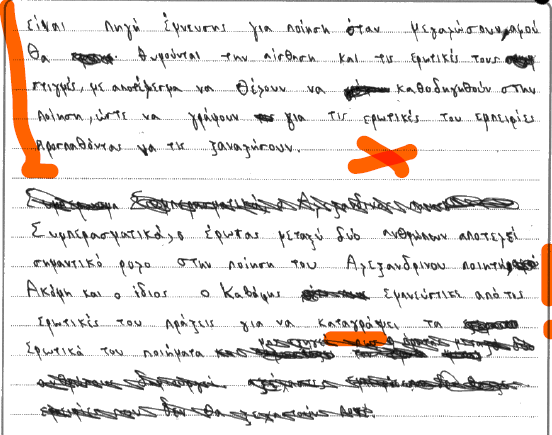 είναι πηγή έμνευσης για ποίηση όταν μεγαλήσουν, αφού
θα θυμούνται την αίσθηση και τις ερωτικές τους
στιγμές, με αποτέλεσμα να θέλουν να καθοδηγηθούν στην
ποίηση, ώστε να γράψουν για τις ερωτικές του εμπειρίες
προσπαθόντας να τις ξαναζήσουν.
Συμπερασματικά, ο έρωτας μεταξύ δύο ανθρώπων αποτελεί
σημαντικό ρολο στην ποίηση του Αλεξανδρινου ποιητή
Ακόμη και ο ίδιος ο Καβάφης εμνεύστικε από τις
ερωτικές του πράξεις για να καταγράψει τα
Ερωτικά του ποιήματα